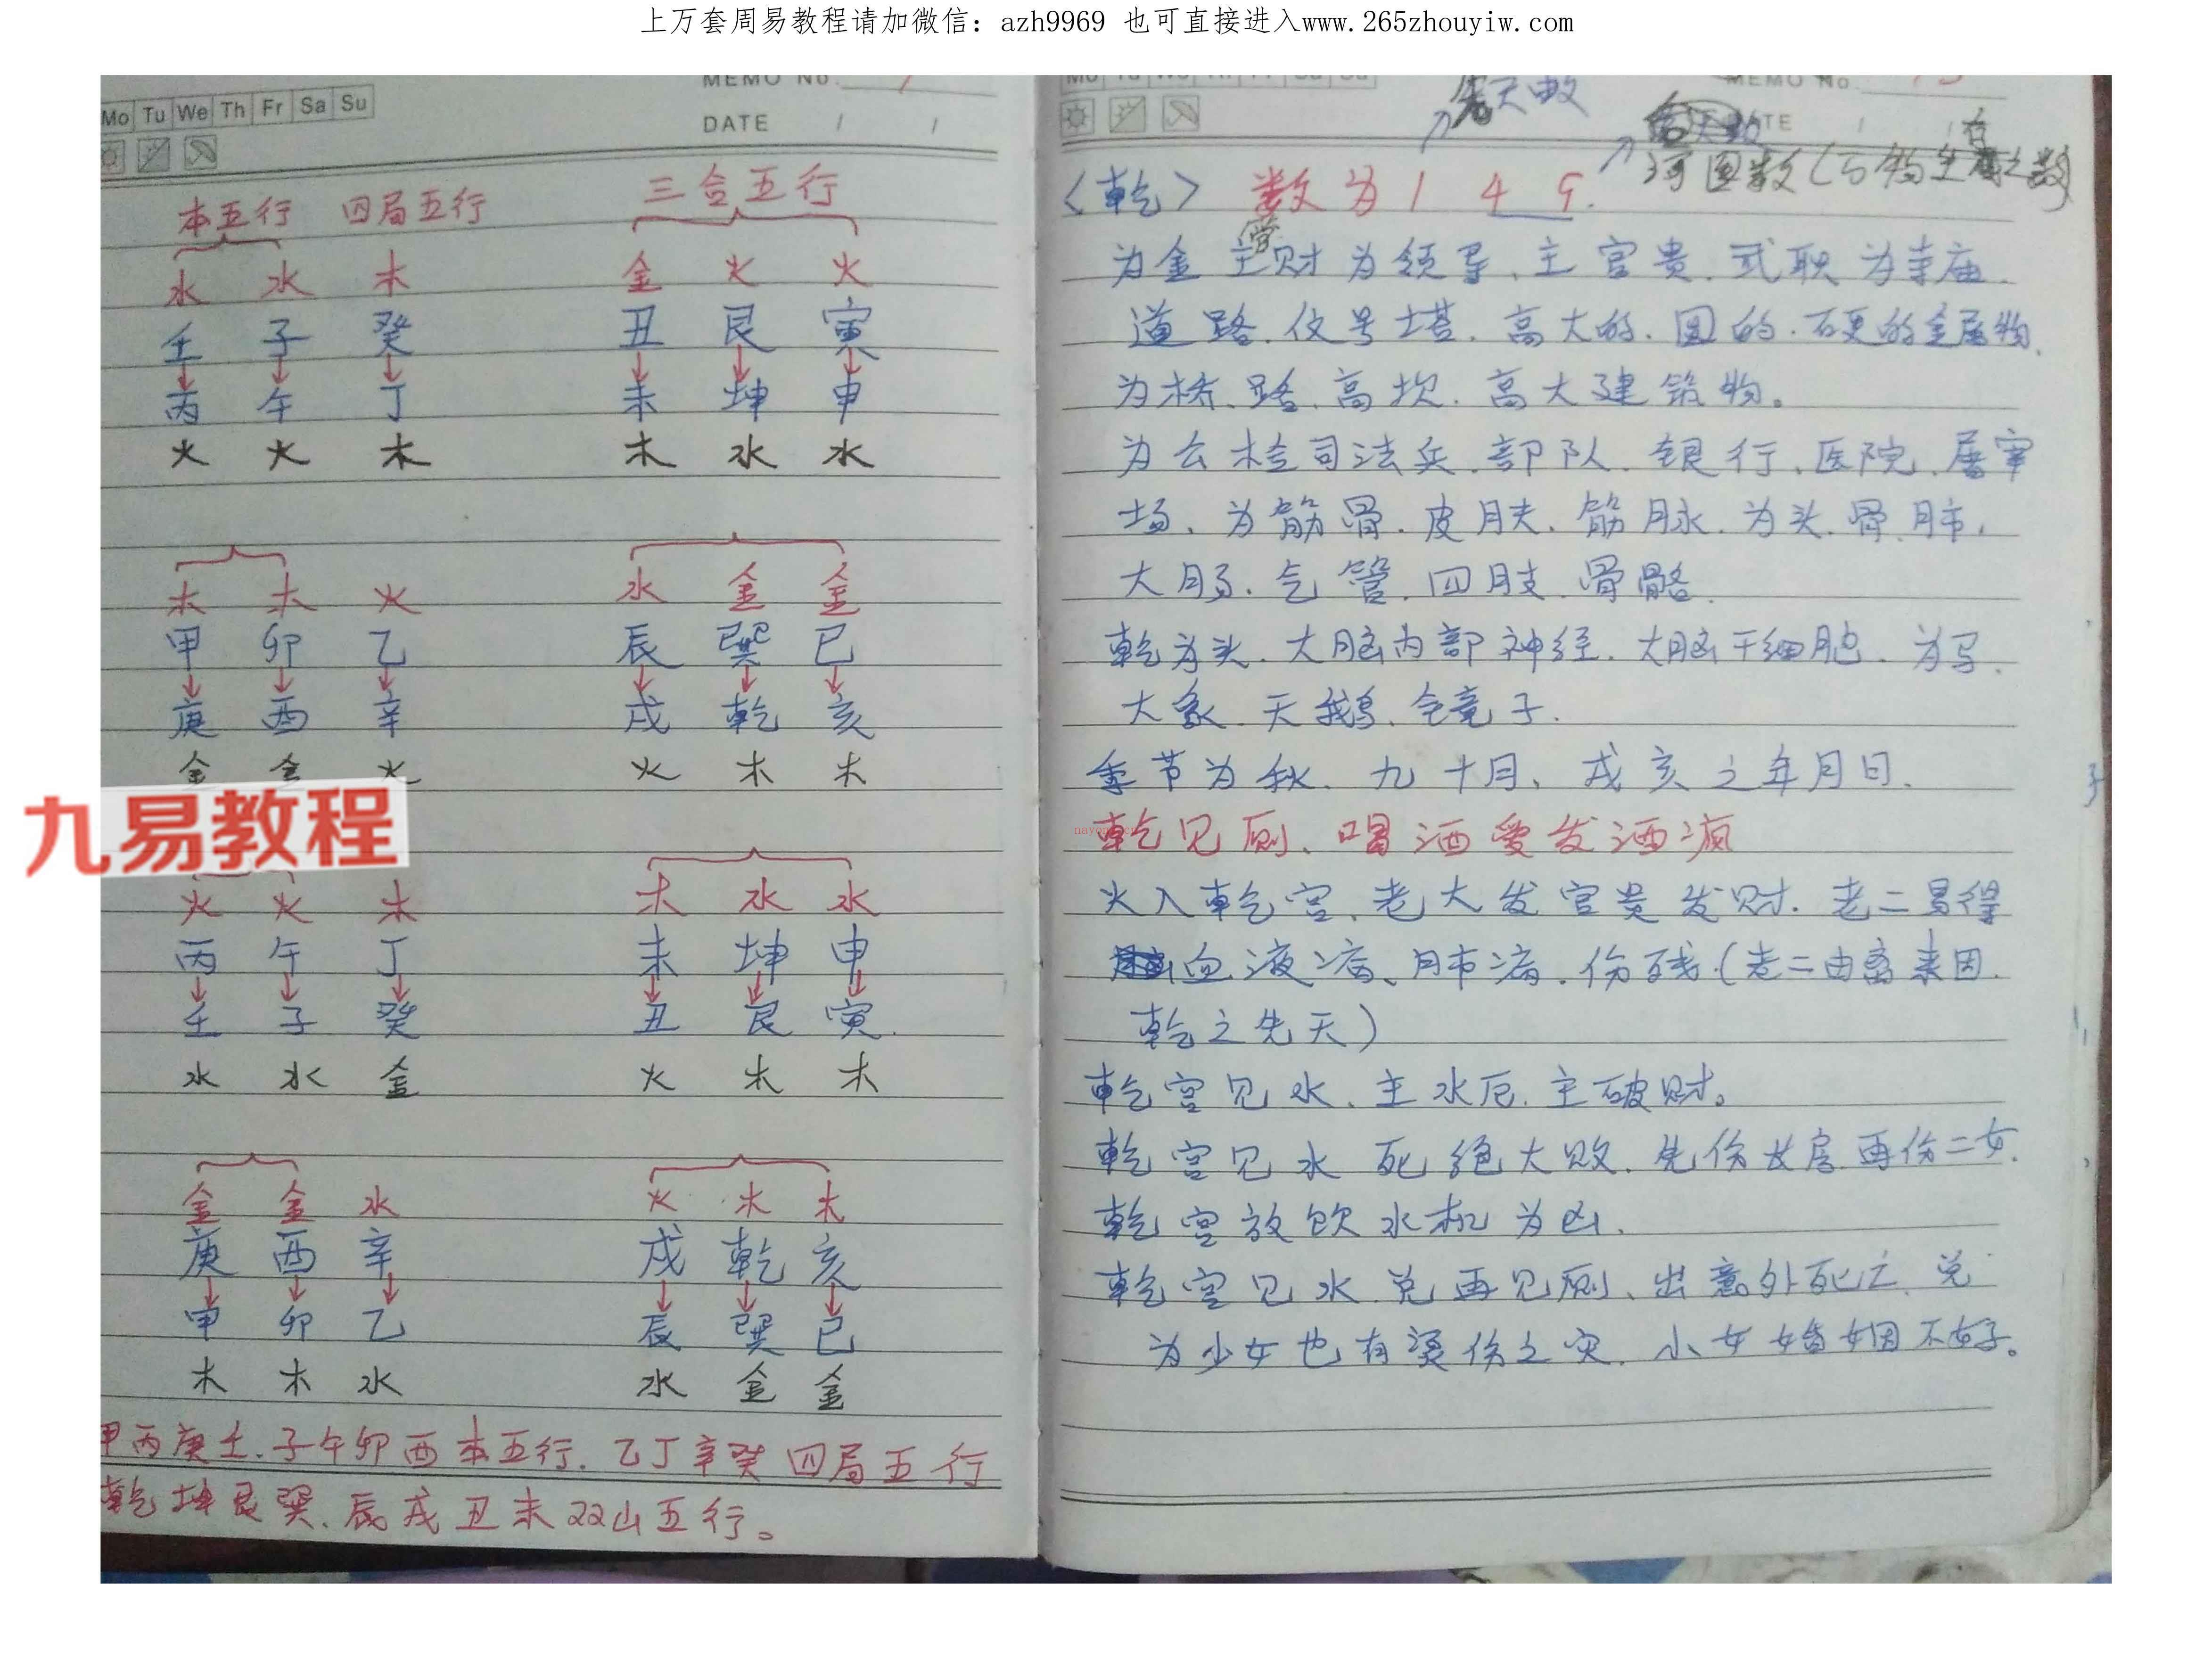 上万套周易教程请加微信：azh9969 也可直接进入www.265zhouyiw.com
MEMO No.
Mo Tu We Th Fr Sa Su
DATE / /
本五行 四局五行 三合五行
水 水 木 金 火 火
壬 子 癸 丑 艮 寅
丙 午 丁 未 坤 申
火 火 木 木 水 水
木 木 火 水 金 金
甲 卯 乙 辰 巽 巳
庚 酉 辛 戌 乾 亥
金 金 火 火 木 木
九易教程
火 火 木 木 水 水
丙 午 丁 未 坤 申
壬 子 癸 丑 艮 寅
水 水 金 火 木 木
金 金 水 火 木 木
庚 酉 辛 戌 乾 亥
甲 卯 乙 辰 巽 巳
木 木 水 水 金 金
甲丙庚壬.子午卯酉本五行.乙丁辛癸四局五行
乾坤艮巽、辰戌丑未双山五行。
Mo Tu We Th Fr Sa Su
MEMO No. 13
先天数
DATE
河图数(万物生存之数)
<乾> 数为1 4 9.
管
为金主财为领导、主官贵.武职为寺庙.
道路.信号塔.高大的.圆的.硬的金属物.
为桥、路、高坎.高大建筑物。
为公检司法兵.部队.银行、医院.屠宰
场、为筋骨.皮肤.筋脉.为头.骨.肺.
大肠.气管.四肢.骨骼.
乾为头.大脑内部神经.大脑干细胞.为马.
大象.天鹅.镜子.
季节为秋.九十月、戌亥之年月日.
乾见厕、喝酒爱发酒疯
火入乾宫、老大发官贵发财.老二易得
血液病、肺病.伤残.(老二由离来因
乾之先天)
乾宫见水、主水厄.主破财。
乾宫见水死绝大败.先伤长房再伤二女.
乾宫放饮水机为凶.
乾宫见水.兑再见厕、出意外死亡.兑
为少女也有烫伤之灾.小女婚姻不好。